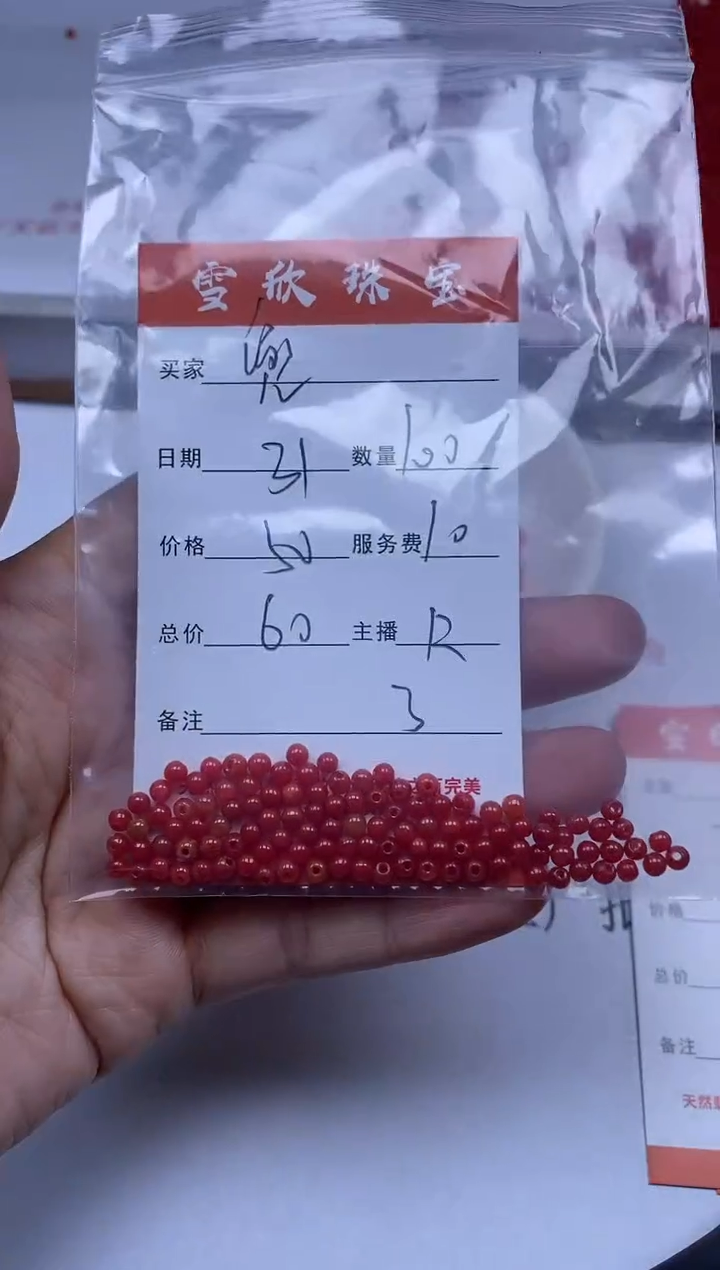 雪欣珠宝
买家
日期 31 数量 100
价格 50 服务费 10
总价 60 主播 R
备注 3
完美
价格
总价
备注
天然